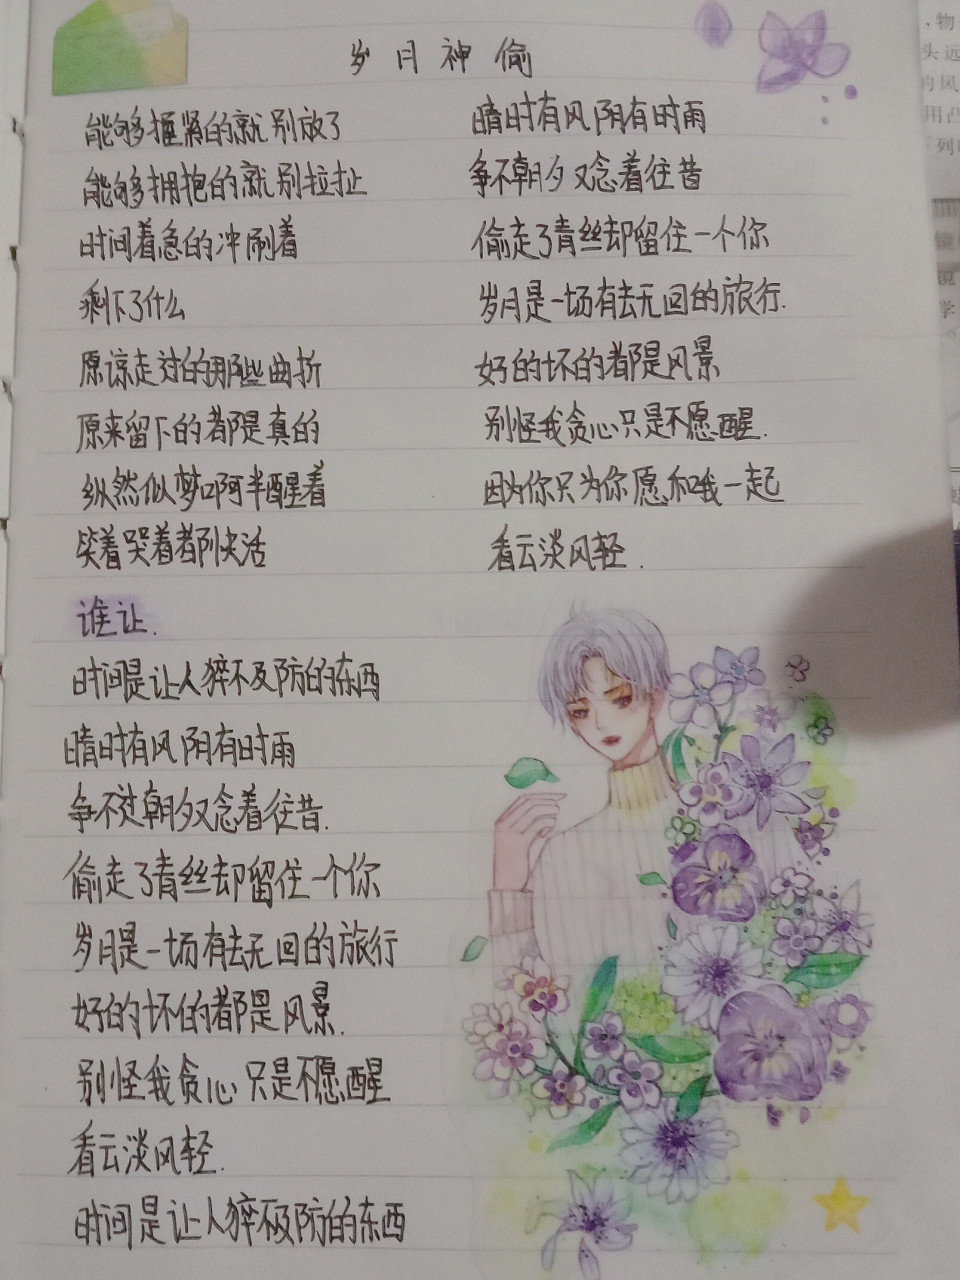 岁月神偷
能够握紧的就别放了
能够拥抱的就别拉扯
时间着急的冲刷着
剩下了什么
原谅走过的那些曲折
原来留下的都是真的
纵然似梦啊半醒着
笑着哭着都快活
谁让
时间是让人猝不及防的东西
晴时有风阴有时雨
争不过朝夕又念着往昔
偷走了青丝却留住一个你
岁月是一场有去无回的旅行
好的坏的都是风景
别怪我贪心只是不愿醒
看云淡风轻
时间是让人猝不及防的东西
晴时有风阴有时雨
争不朝夕又念着往昔
偷走了青丝却留住一个你
岁月是一场有去无回的旅行.
好的坏的都是风景
别怪我贪心只是不愿醒.
因为你只为你愿和我一起
看云淡风轻.